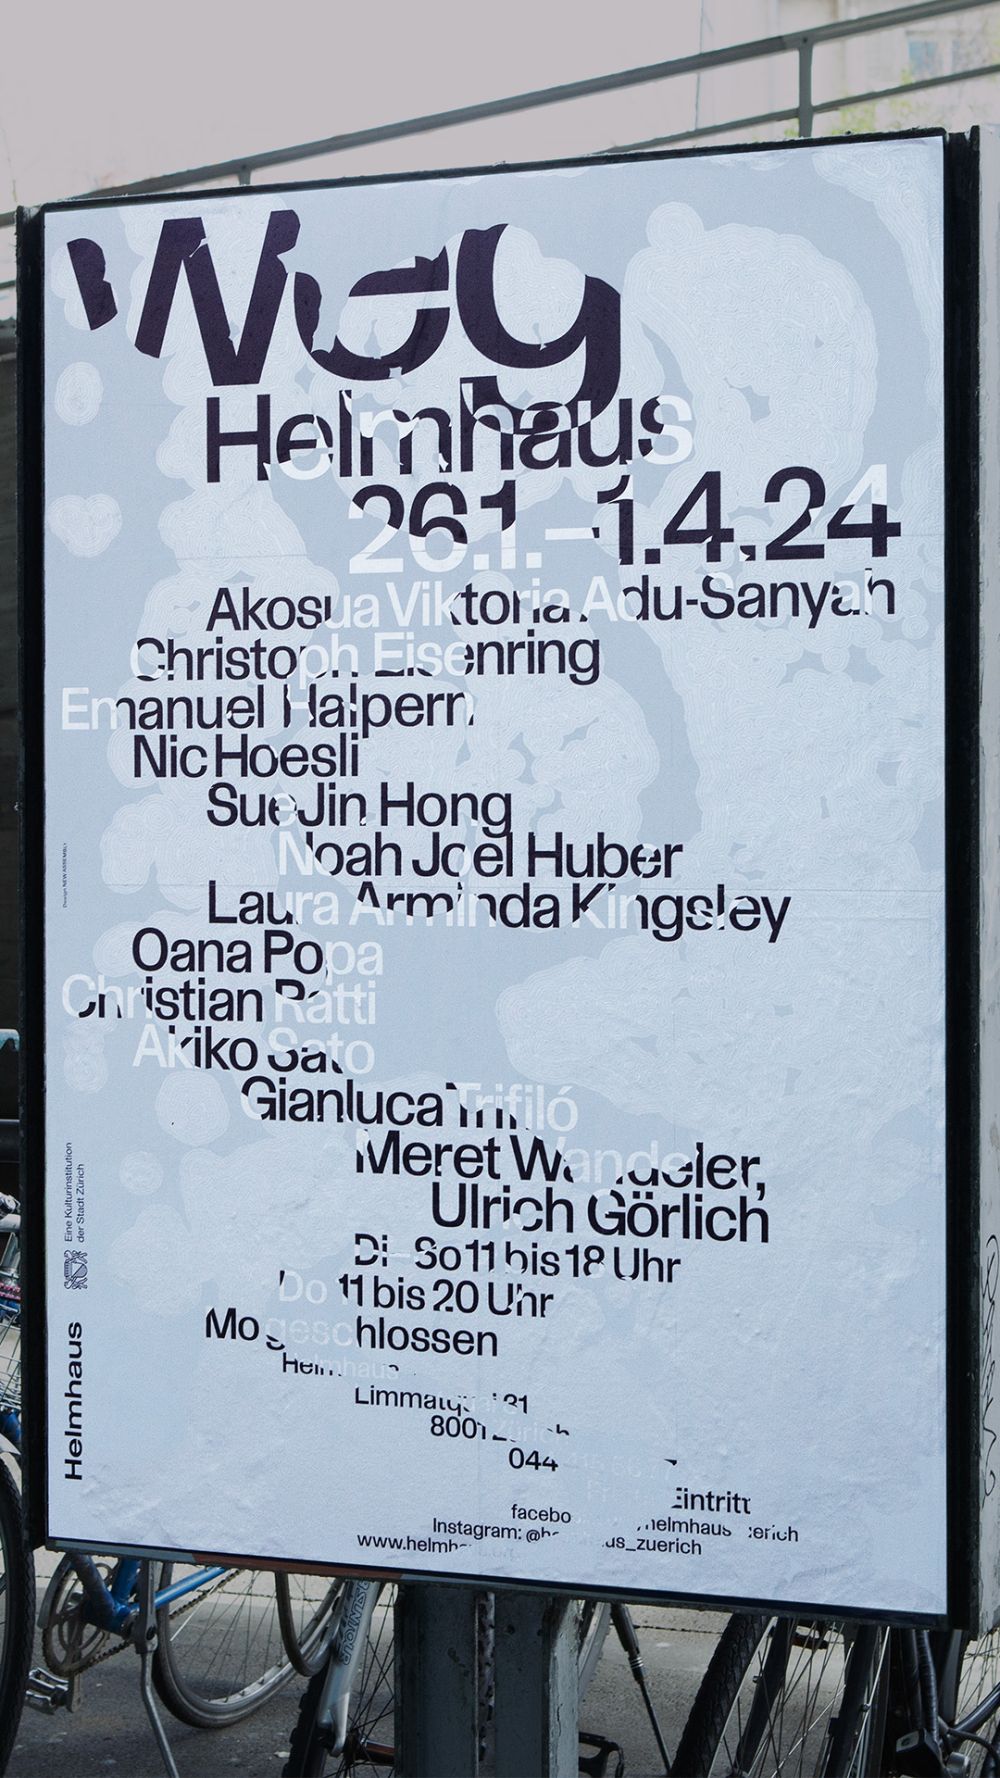 Weg
Helmhaus
26.1.–1.4.24
Akosua Viktoria Adu-Sanyah
Christoph Eisenring
Emanuel Halpern
Nic Hoesli
SueJin Hong
Noah Joel Huber
Laura Arminda Kingsley
Oana Popa
Christian Ratti
Akiko Sato
Gianluca Trifiló
Meret Wandeler,
Ulrich Görlich
Di–So 11 bis 18 Uhr
Do 11 bis 20 Uhr
Mo geschlossen
Helmhaus
Limmatquai 31
8001 Zürich
044
Eintritt
helmhaus
Instagram: @helmhaus_zuerich
www.helmhaus.org
Design: NEW ASSEMBLY
Eine Kulturinstitution
der Stadt Zürich
Helmhaus